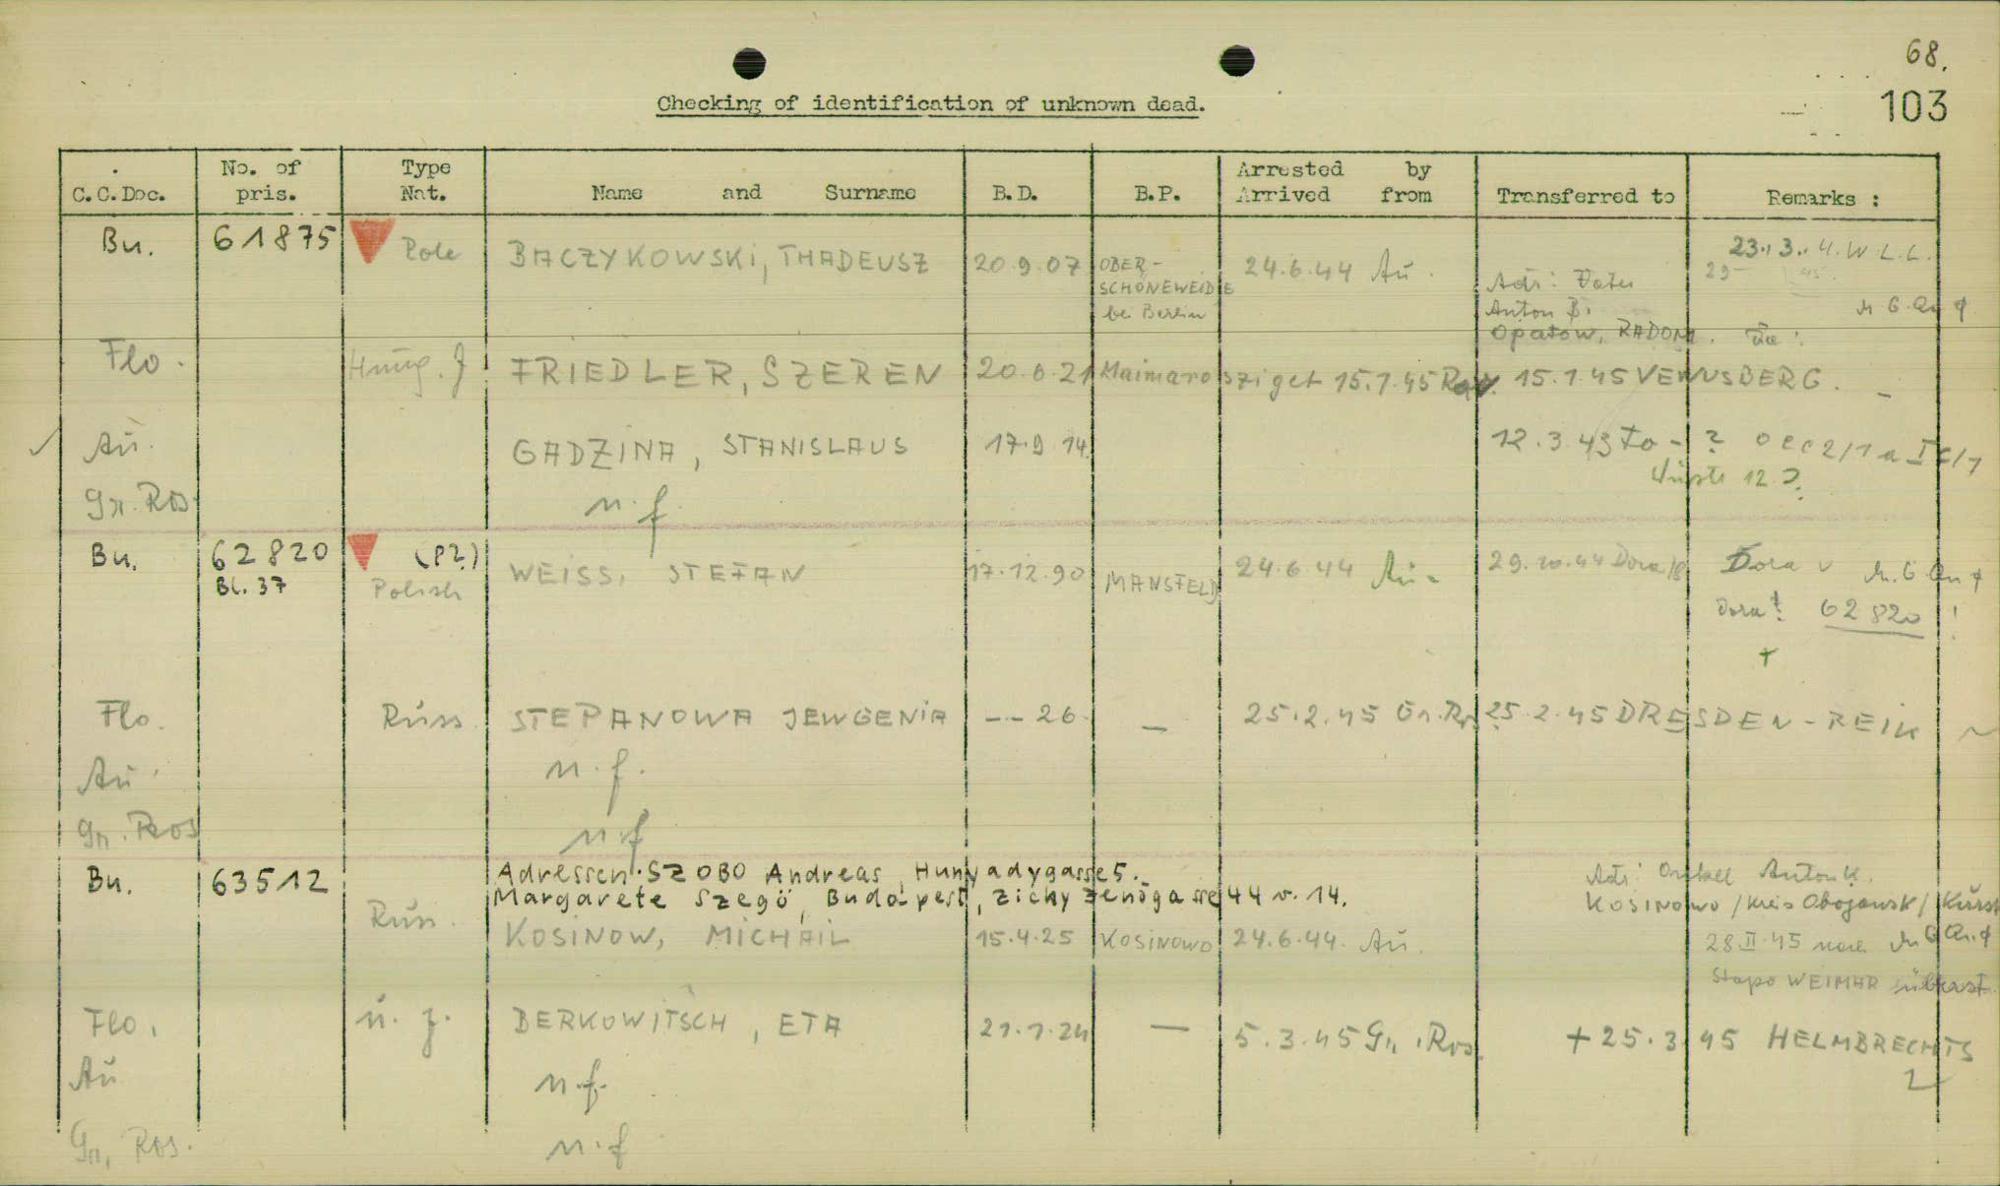 68.
103
Checking of identification of unknown dead.
C.C.Doc. No. of pris. Type Nat. Name and Surname B.D. B.P. Arrested by Arrived from Transferred to Remarks :
Bu. 61875 Pole BACZYKOWSKI, THADEUSZ 20.9.07 OBER- 24.6.44 Au. 23.3. W L.L.
SCHÖNEWEIDE Adr: Vater 29
bei Berlin Anton B.
Opatow, RADOM.
Flo. Hung. J FRIEDLER, SZEREN 20.6.21 Maimarosziget 15.1.45 Rav. 15.1.45 VENUSBERG. -
Au. GADZINA, STANISLAUS 17.9.14 12.3.43 to - ? OCC2/1a IC/1
12.?
Gr. Ros n.f
Bu. 62820 (P?) WEISS, STEFAN 17.12.90 MANSFELD 24.6.44 Au. 29.10.44 Dora Dora v
Bl. 37 Polish Dora! 62820 !
+
Flo. Russ. STEPANOWA JEWGENIA -- 26. — 25.2.45 Gr.Ro. 25.2.45 DRESDEN-REIK ~
Au n.f.
Gr. Ros n.f
Bu. 63512 Adressen: SZOBO Andreas, Hunyadygasse 5. Adr: Onkel Anton K.
Margarete Szegö, Budapest, Zichy Jenögasse 44 v. 14. KOSINOWO /Kreis Obojansk/ Kursk
Russ. KOSINOW, MICHAIL 15.4.25 KOSINOWO 24.6.44. Au. 28 II 45 nach
Stapo WEIMAR
Flo. u. J. BERKOWITSCH, ETA 21.1.24 — 5.3.45 Gr. Ros. + 25.3.45 HELMBRECHTS
Au n.f.
Gr. Ros. n.f